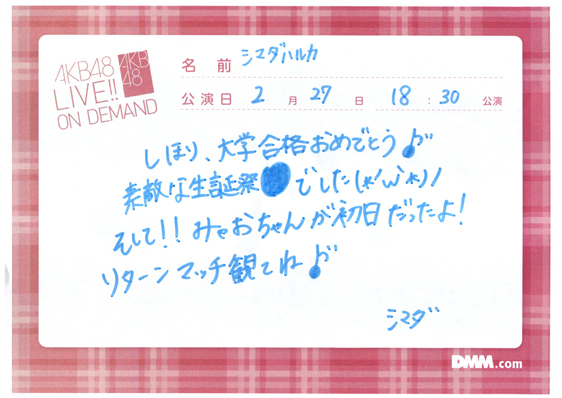 AKB48
LIVE!!
ON DEMAND
AKB
48
名 前 シマダハルカ
公演日 2 月 27 日 18 : 30 公演
しほり、大学合格おめでとう♪
素敵な生誕祭でした(*'ω'*)ノ
そして!!みゃおちゃんが初日だったよ!
リターンマッチ観てね♪
シマダ
DMM.com